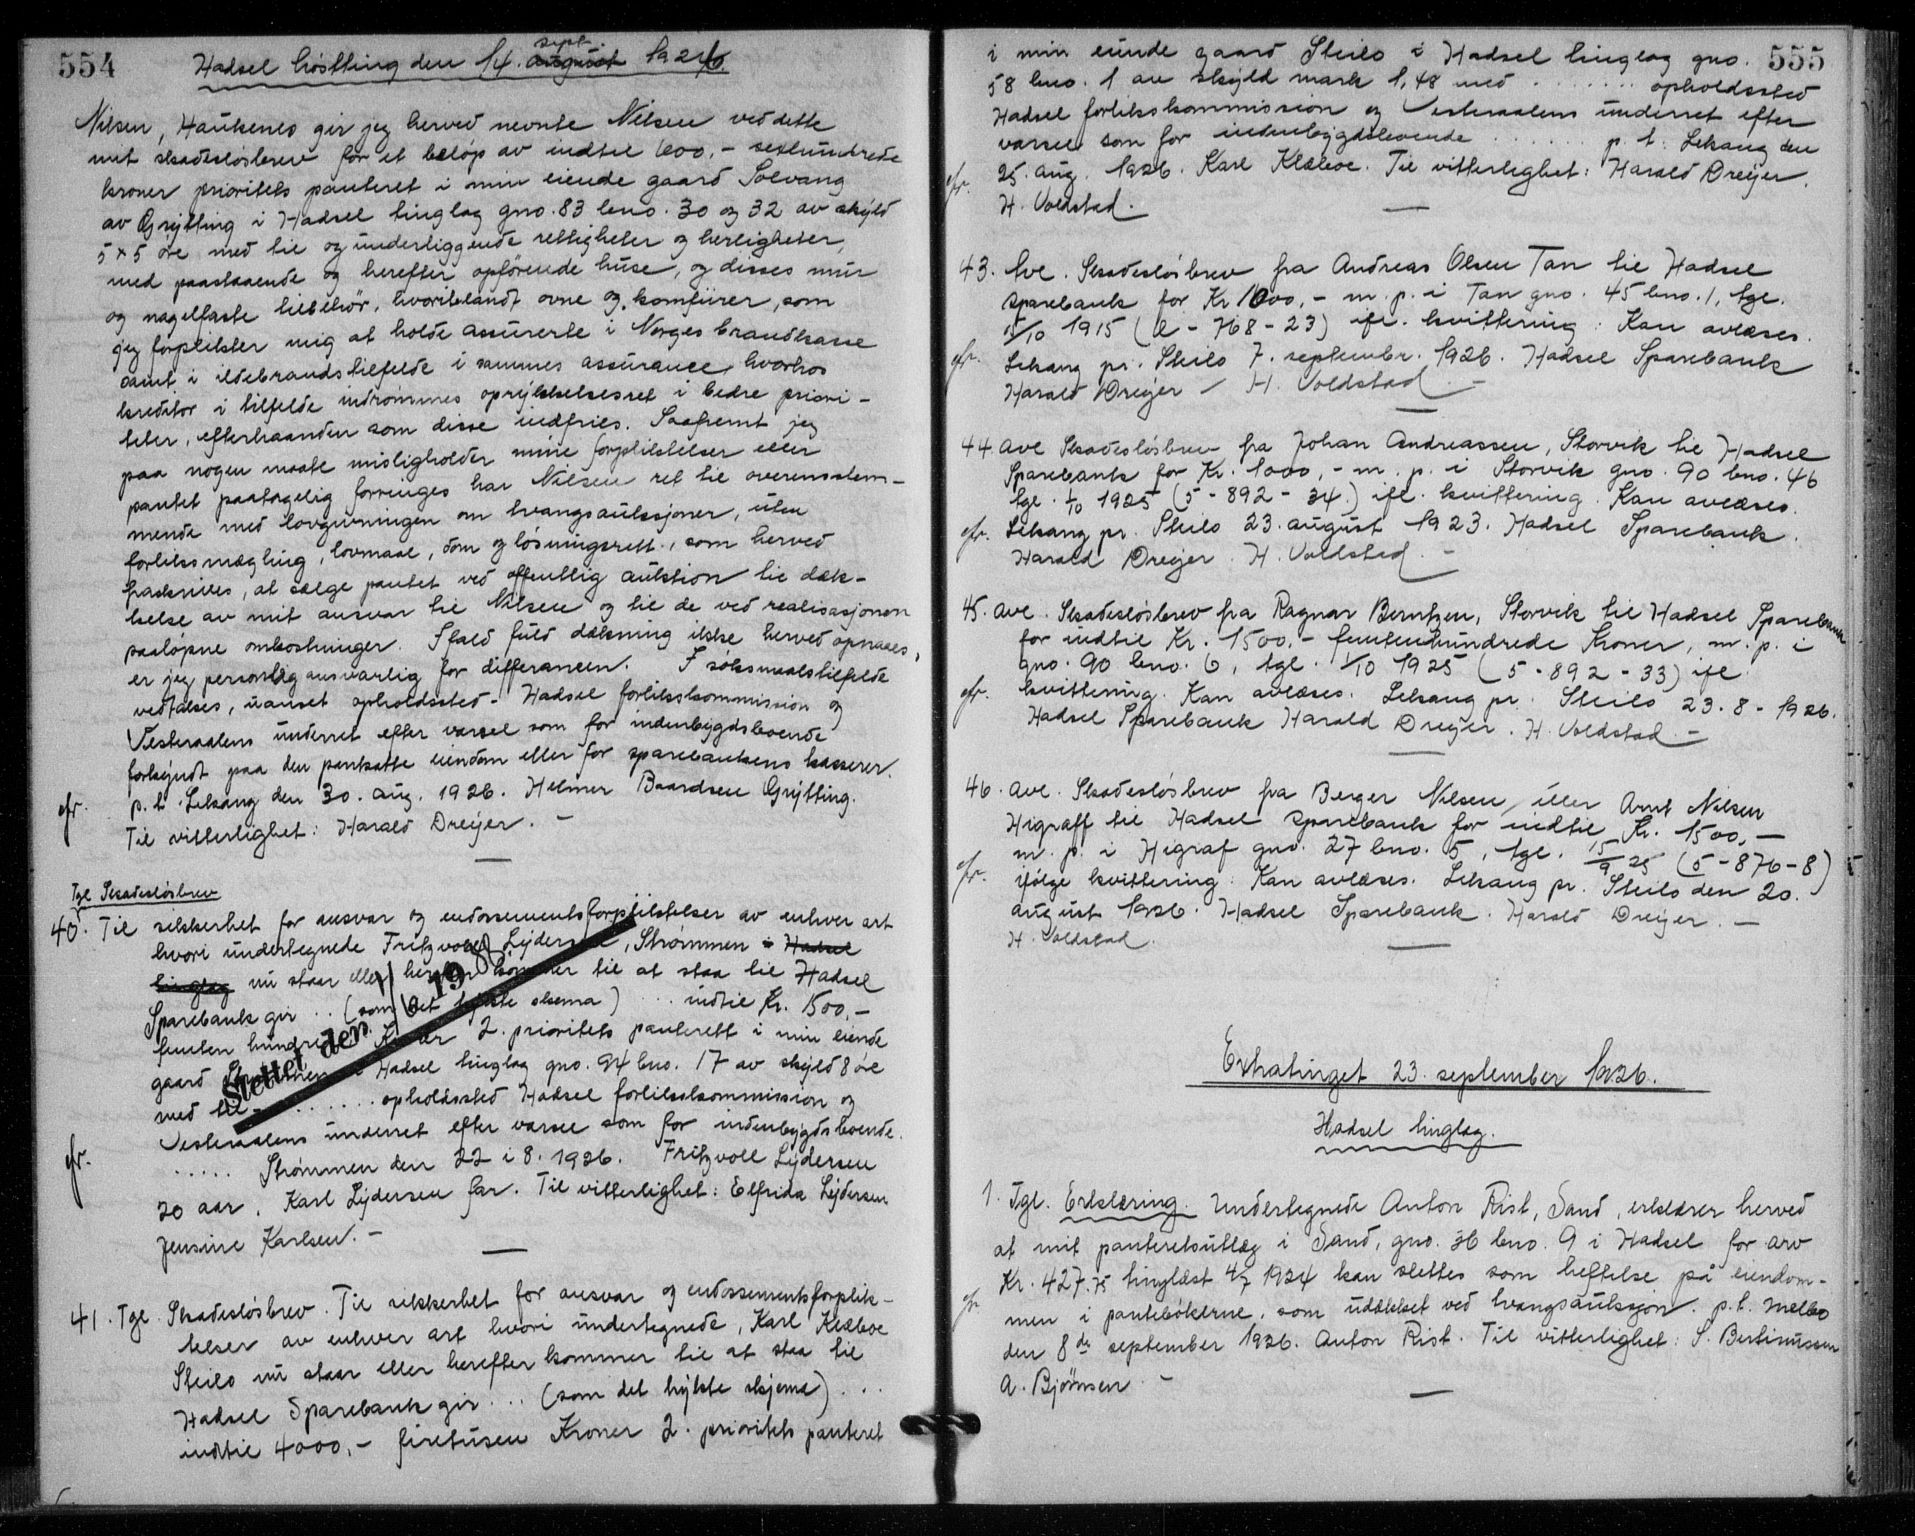 554
Hadsel høstting den 14. august sept. 1926.
Nilsen, Haukenes gir jeg herved nevnte Nilsen ved dette
mit skadesløsbrev for et beløp av indtil 600,- sexhundrede
kroner prioritets panteret i min eiende gaard Solvang
av Grytting i Hadsel tinglag gno. 83 bno. 30 og 32 av skyld
5 x 5 øre med til og underliggende rettigheter og herligheter,
med paastaaende og herefter opførende huse, og disses mur
og nagelfaste tilbehør, hvoriblandt ovne og komfurer, som
jeg forplikter mig at holde assurerte i Norges brandkasse
samt i ildebrandstilfelde i sammes assurance, hvorhos
kreditor i tilfelde indrømmes oprykkelsesret i bedre priori-
teter, efterhaanden som disse indfries. Saafremt jeg
paa nogen maate misligholder mine forpliktelser eller
pantet paatagelig forringes har Nilsen ret til overensstem-
mende med lovgivningen om tvangsauksjoner, uten
forliksmægling, lovmaal, dom og løsningsrett, som herved
fraskrives, at sælge pantet ved offentlig auktion til dæk-
kelse av mit ansvar til Nilsen og til de ved realisasjonen
paaløpne omkostninger. Ifald fuld dækning ikke herved opnaaes,
er jeg personlig ansvarlig for differancen. I søksmaalstilfelde
vedtakes, uanset opholdssted - Hadsel forlikskommission og
Vesteraalens underret efter varsel som for indenbygdsboende
forkyndt paa den pantsatte eiendom eller for sparebankens kasserer.
p. t. Lekang den 30. aug. 1926. Helmer Baardsen Grytting.
Til vitterlighet: Harald Dreyer. -
Tgl. Skadesløsbrev
40. Til sikkerhet for ansvar og endossementsforpliktelser av enhver art
hvori undertegnede Fritzvold Lydersen, Strømmen i Hadsel
tinglag nu staar eller herefter kommer til at staa til Hadsel
Sparebank gir .. (som det trykte skema) ... indtil Kr. 1500,-
femten hundrede Kroner 2. prioritets panterett i min eiende
gaard Strømmen i Hadsel tinglag gno. 94 bno. 17 av skyld 8 øre
med til ......... opholdssted Hadsel forlikskommission og
Vesteraalens underret efter varsel som for indenbygdsboende.
..... Strømmen den 22 i 8. 1926. Fritzvoll Lydersen
20 aar. Karl Lydersen far. Til vitterlighet: Elfrida Lydersen
Jensine Karlsen. -
Slettet den 19
41. Tgl. Skadesløsbrev. Til sikkerhet for ansvar og endossementsforplik-
telser av enhver art hvori undertegnede, Karl Klæboe
Steilo nu staar eller herefter kommer til at staa til
Hadsel Sparebank gir ... (som det trykte skjema) ...
indtil 4000,- firetusen Kroner 2. prioritets panteret
555
i min eiende gaard Steilo i Hadsel tinglag gno.
58 bno. 1 av skyld mark 1,48 med ....... opholdssted
Hadsel forlikskommission og Vesteraalens underret efter
varsel som for indenbygdsboende ..... p. t. Lekang den
25. aug. 1926. Karl Klæboe. Til vitterlighet: Harald Dreyer.
H. Voldstad.
43. Avl. Skadesløsbrev fra Andreas Olsen Tan til Hadsel
Sparebank for Kr 1000,- m. p. i Tan gno. 45 bno. 1, tgl.
15/10 1915 (2 - 768 - 23) ifl. kvittering: Kan avlæses.
Lekang pr. Steilo 7. septembr. 1926. Hadsel Sparebank
Harald Dreyer / H. Voldstad. -
44 Avl Skadesløsbrev fra Johan Andreassen, Storvik til Hadsel
Sparebank for Kr. 1000,- m. p. i Storvik gno. 90 bno. 46
tgl. 1/10 1925 (5 - 892 - 34.) ifl. kvittering. Kan avlæses.
Lekang pr. Steilo 23. august 1923. Hadsel Sparebank.
Harald Dreyer. H. Voldstad. -
45. Avl. Skadesløsbrev fra Ragnar Berntzen, Storvik til Hadsel Sparebank
for indtil Kr. 1500,- femtenhundrede Kroner, m. p. i
gno. 90 bno. 6, tgl. 1/10 1925 (5 - 892 - 33) ifl.
kvittering. Kan avlæses. Lekang pr. Steilo 23. 8 - 1926.
Hadsel Sparebank Harald Dreyer. H. Voldstad -
46. Avl. Skadesløsbrev fra Berger Nilsen, eller Arnt Nilsen
Higraff til Hadsel Sparebank for indtil Kr. 1500,-
m. p. i Higraf gno. 27 bno. 5, tgl. 15/9 25 (5 - 876 - 8)
ifølge kvittering: Kan avlæses. Lekang pr. Steilo den 20.
august 1926. Hadsel Sparebank. Harald Dreyer. -
H. Voldstad.
Extratinget 23. september 1926.
Hadsel tinglag.
1. Tgl. Erklæring. Undertegnede Anton Rist, Sand, erklærer herved
at mit panteretsutlæg i Sand, gno. 36 bno. 9 i Hadsel for arv
Kr. 427.75 tinglæst 4/7 1924 kan slettes som heftelse på eiendom-
men i pantebøkerne, som udækket ved tvangsauksjon. p.t. Melbo
den 8de september 1926. Anton Rist. Til vitterlighet: S. Bertinussen
A. Bjørnsen -